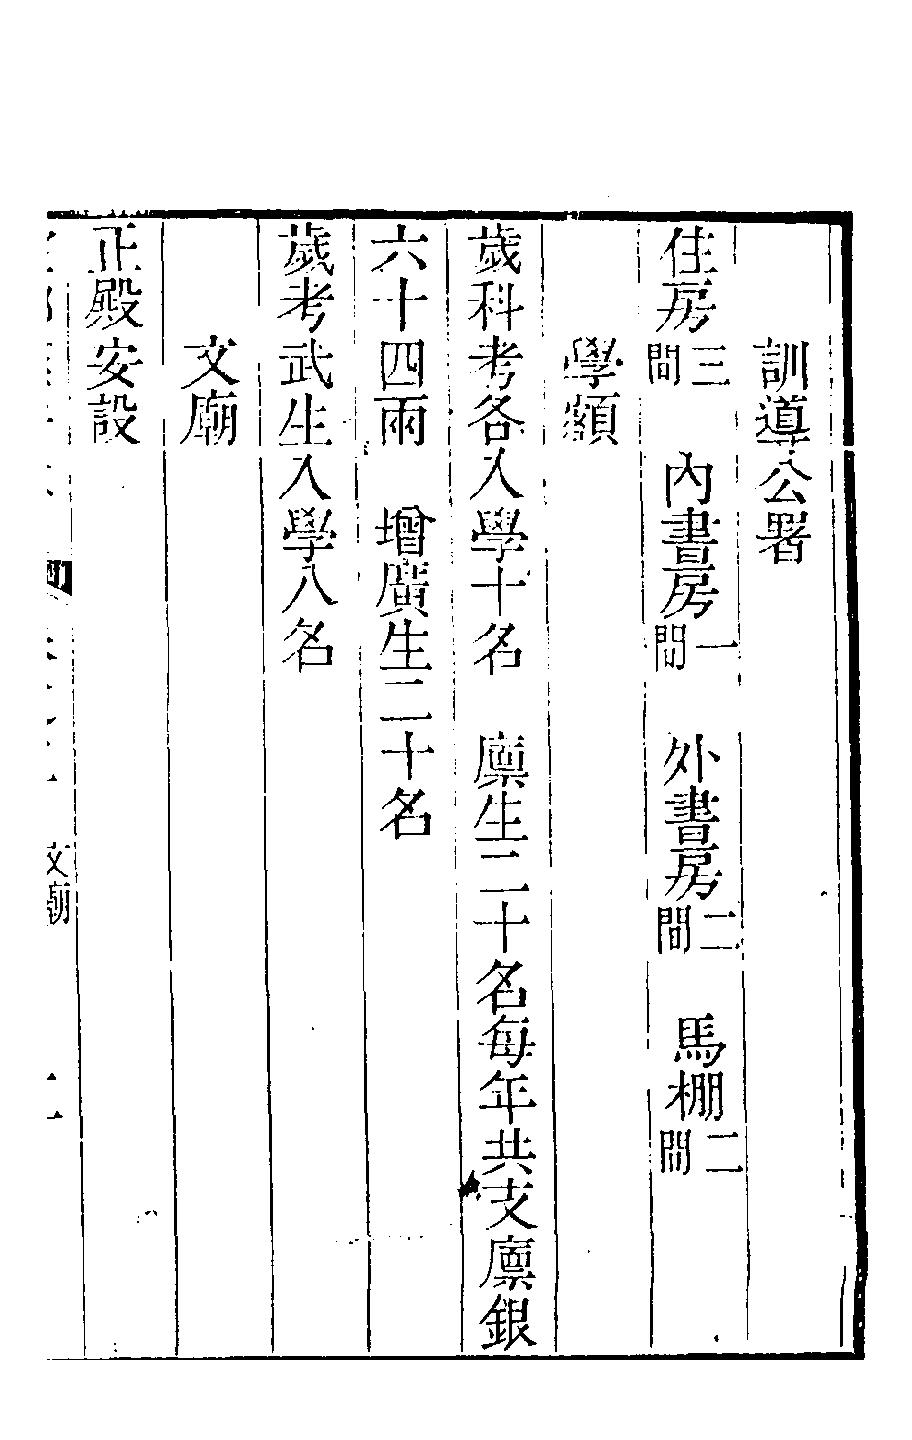 訓導公署
住房三間　內書房一間　外書房二間　馬棚二間
學額
歲科考各入學十名　廩生二十名每年共支廩銀
六十四兩　增廣生二十名
歲考武生入學八名
文廟
正殿安設
文廟